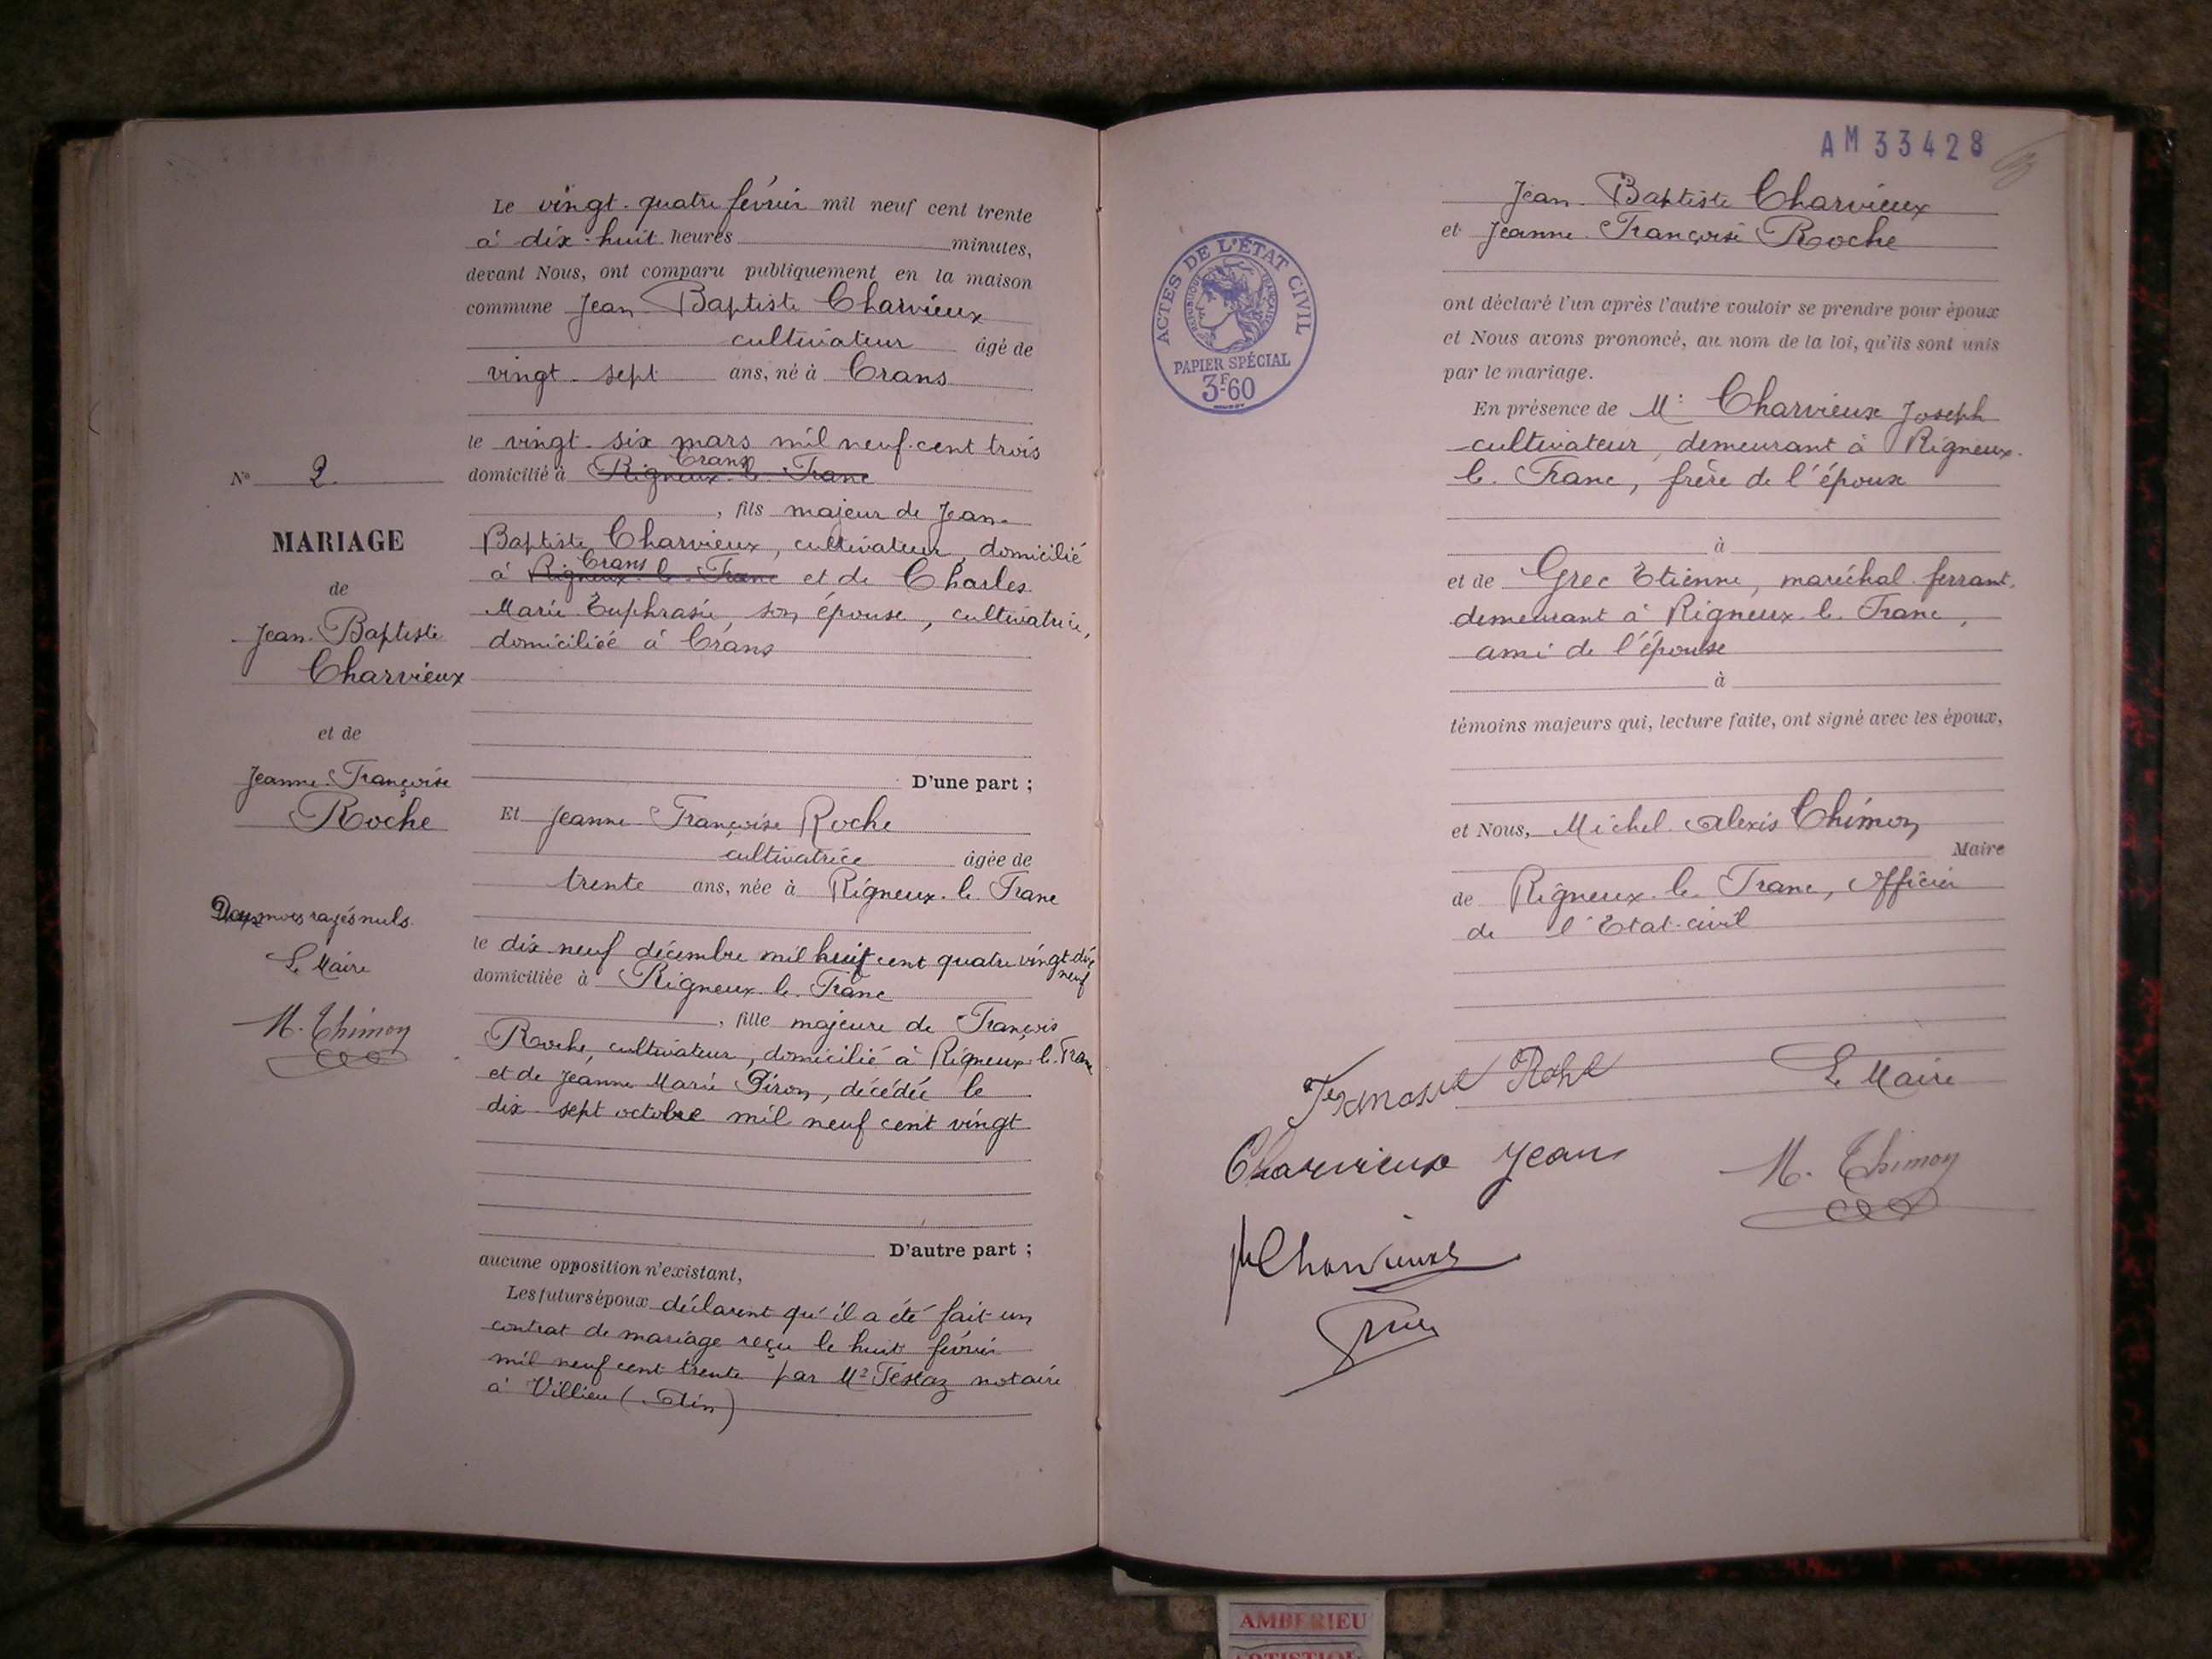 Le vingt-quatre février mil neuf cent trente
à dix-huit heures minutes,
devant Nous, ont comparu publiquement en la maison
commune Jean-Baptiste Charvieux
cultivateur âgé de
vingt-sept ans, né à Crans
le vingt-six mars mil neuf-cent trois
Crans
domicilié à Rigneux-le-Franc
, fils majeur de Jean-
Baptiste Charvieux, cultivateur, domicilié
Crans
à Rigneux-le-Franc et de Charles
Marie Euphrasie, son épouse, cultivatrice,
domiciliée à Crans
D'une part ;
Et Jeanne-Françoise Roche
cultivatrice âgée de
trente ans, née à Rigneux-le-Franc
le dix-neuf décembre mil huit cent quatre vingt-dix
neuf
domiciliée à Rigneux-le-Franc
, fille majeure de François
Roche, cultivateur, domicilié à Rigneux-le-Franc
et de Jeanne Marie Piron, décédée le
dix-sept octobre mil neuf cent vingt
D'autre part ;
aucune opposition n'existant,
Les futurs époux déclarent qu'il a été fait un
contrat de mariage reçu le huit février
mil neuf cent trente par Me notaire
à Villieu (Ain)
No 2
MARIAGE
de
Jean-Baptiste
Charvieux
et de
Jeanne-Françoise
Roche
mots rayés nuls
Le Maire
M. Thimon
AM 33428
ACTES DE L'ÉTAT CIVIL
RÉPUBLIQUE FRANÇAISE
PAPIER SPÉCIAL
3F60
Jean-Baptiste Charvieux
et Jeanne-Françoise Roche
ont déclaré l'un après l'autre vouloir se prendre pour époux
et Nous avons prononcé, au nom de la loi, qu'ils sont unis
par le mariage.
En présence de M. Charvieux Joseph
cultivateur, demeurant à Rigneux-
le-Franc, frère de l'époux
à
et de Grec Etienne, maréchal-ferrant,
demeurant à Rigneux-le-Franc,
ami de l'épouse
à
témoins majeurs qui, lecture faite, ont signé avec les époux,
et Nous, Michel-Alexis Thimon
Maire
de Rigneux-le-Franc, Officier
de l'Etat-civil
Le Maire
Charvieux Jean
M. Thimon
Charvieux
Grec
AMBERIEU